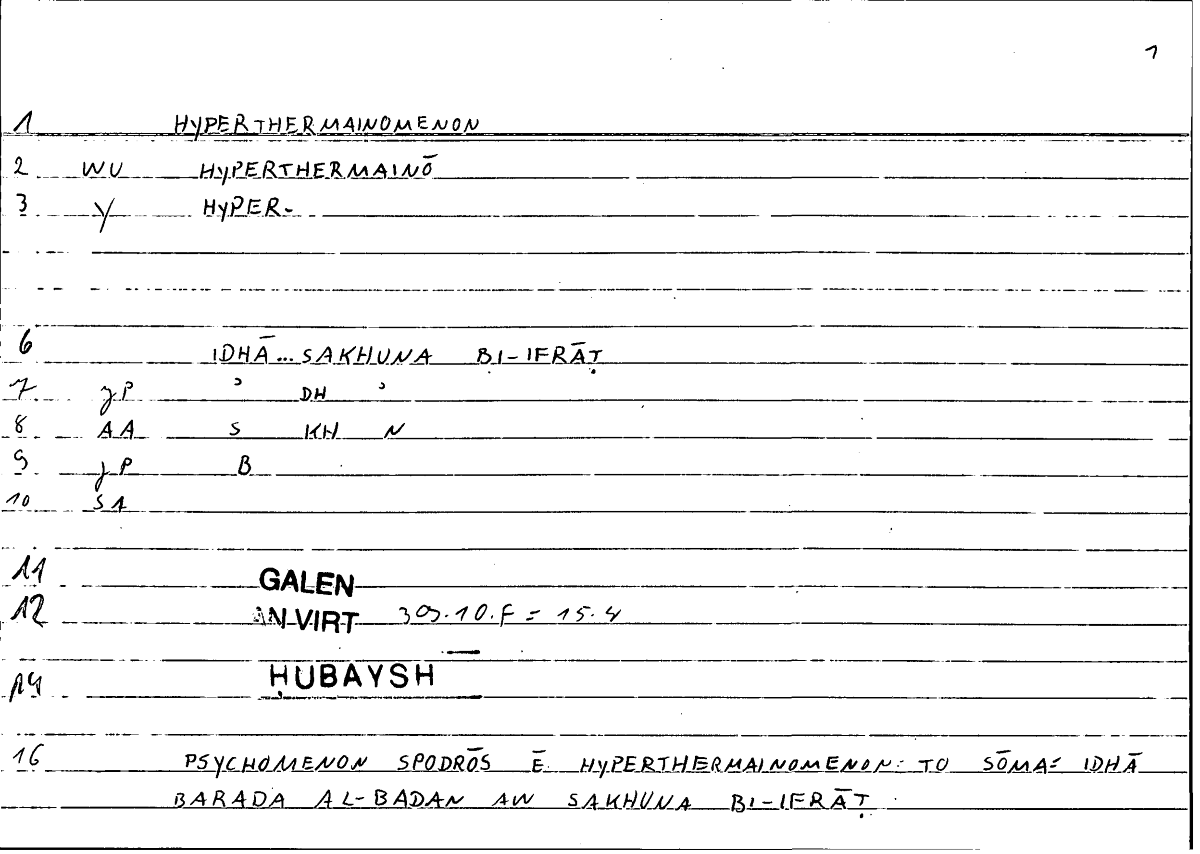 1
1 HYPERTHERMAINOMENON
2 WU HYPERTHERMAINŌ
3 Y HYPER-
6 IDHĀ...SAKHUNA BI-IFRĀṬ
7 JP ʾ DH ʾ
8 AA S KH N
9 JP B
10 SA
11 GALEN
12 AN VIRT 309.10.F = 15.4
14 ḤUBAYSH
16 PSYCHOMENON SPODRŌS Ē HYPERTHERMAINOMENON: TO SŌMA= IDHĀ
BARADA AL-BADAN AW SAKHUNA BI-IFRĀṬ